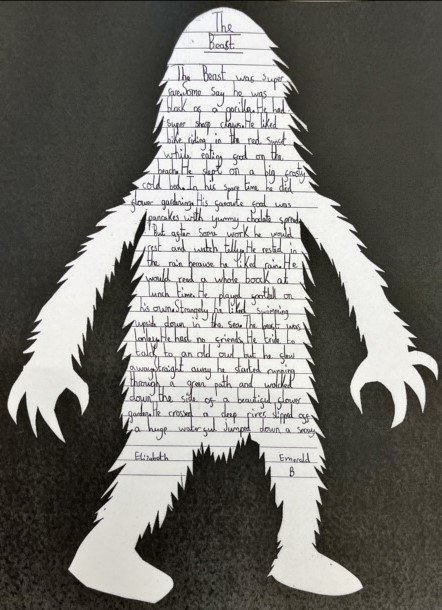 The
Beast
The Beast was super
rare. Some say he was
black as a gorilla. He had
super sharp claws. He liked
bike riding in the red sunset
while eating food on the
beach. He slept on a big frosty
cold bed. In his spare time he did
flower gardening. His favourite food was
pancakes with yummy choclate spread.
But after some work he would
rest and watch telly. He rested in
the rain because he liked rain. He
would read a whole book at
lunch time. He played football on
his own. Strangely he liked swimming
upside down in the sea. The beast was
lonley. He had no friends. He tride to
talk to an old owl but he flew
away. Straight away he started running
through a green path and walked
down the side of a beautiful flower
garden. He crossed a deep river, slipped
a huge waterfall Jumped down a
Elizabeth
Emerald
B